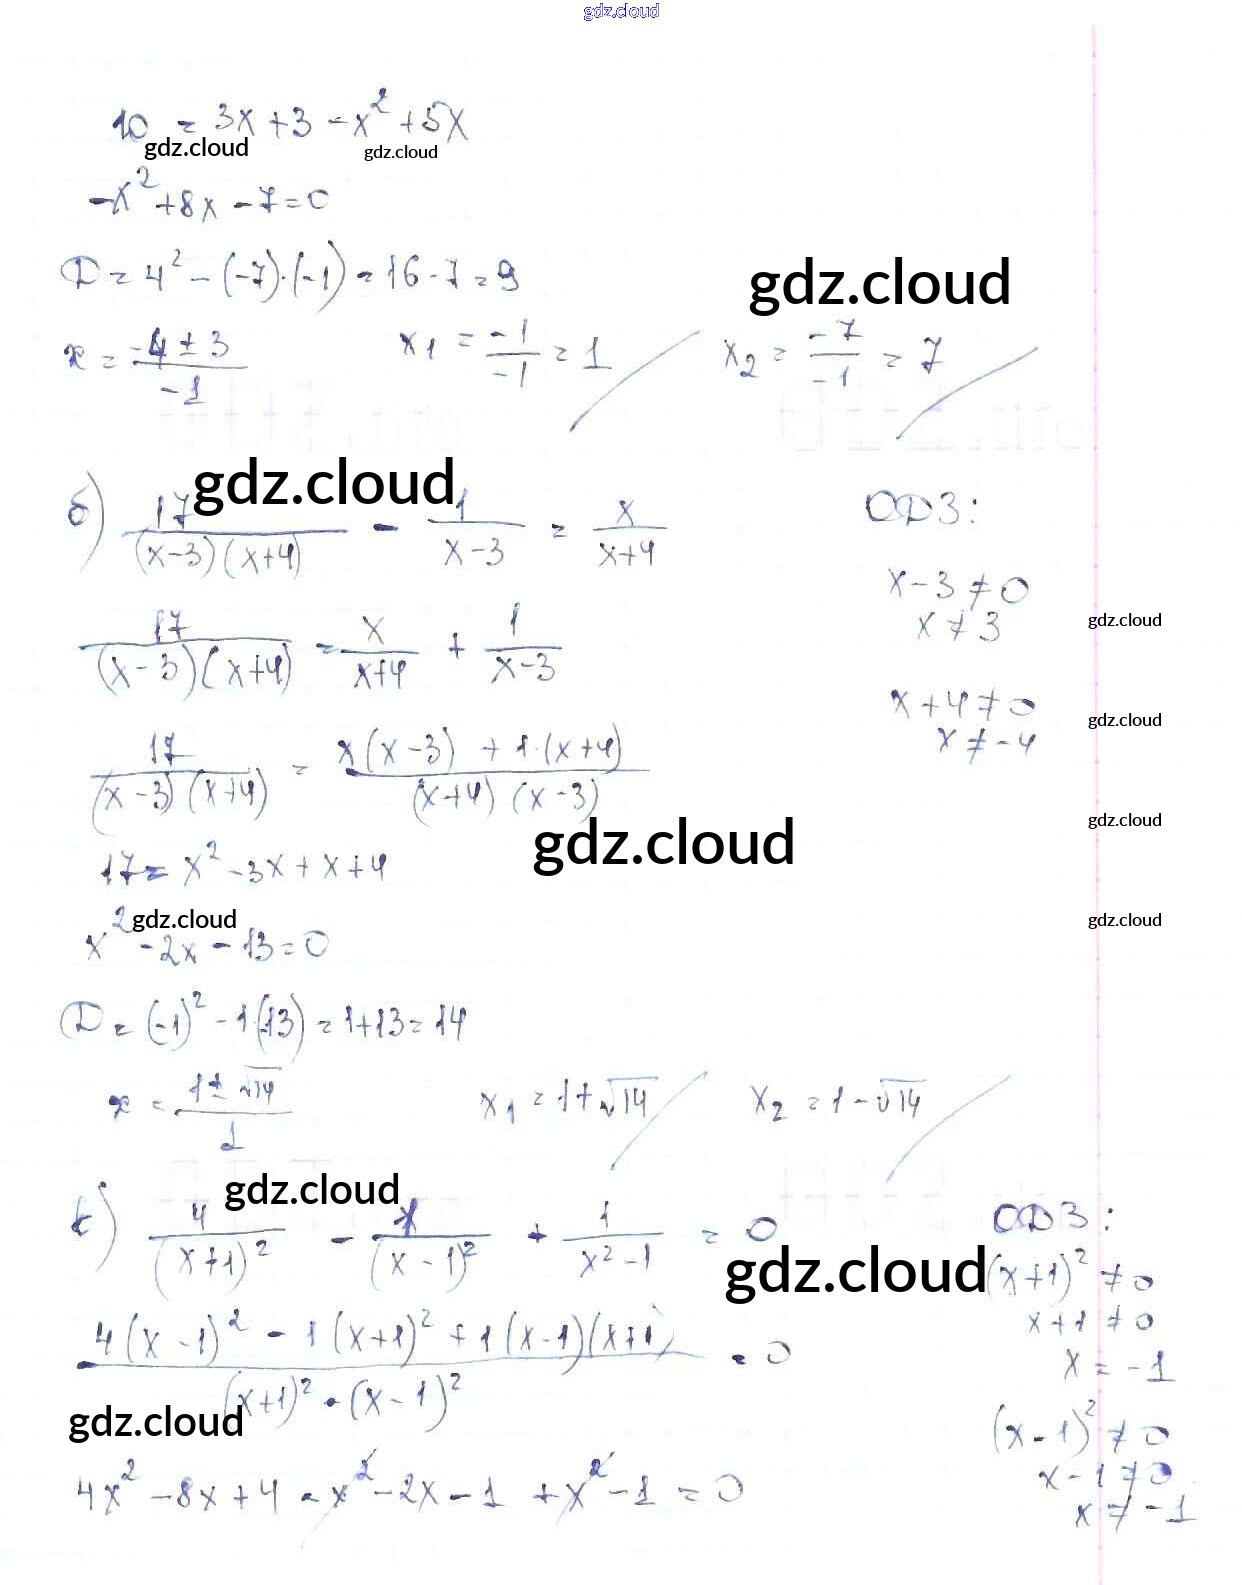 gdz.cloud
10 = 3x + 3 - x² + 5x
gdz.cloud gdz.cloud
-x² + 8x - 7 = 0
D = 4² - (-7)·(-1) = 16 - 7 = 9
gdz.cloud
x = (-4 ± 3)/(-1) x₁ = (-1)/(-1) = 1 x₂ = (-7)/(-1) = 7
gdz.cloud
б) 17/((x-3)(x+4)) - 1/(x-3) = x/(x+4) ОДЗ:
x - 3 ≠ 0
gdz.cloud
x ≠ 3
17/((x-3)(x+4)) = x/(x+4) + 1/(x-3)
x + 4 ≠ 0
gdz.cloud
x ≠ -4
17/((x-3)(x+4)) = (x(x-3) + 1·(x+4))/((x+4)(x-3))
gdz.cloud
gdz.cloud
17 = x² - 3x + x + 4
gdz.cloud gdz.cloud
x² - 2x - 13 = 0
D = (-1)² - 1·(-13) = 1 + 13 = 14
x = (1 ± √14)/1 x₁ = 1 + √14 x₂ = 1 - √14
gdz.cloud
4/(x+1)² - 1/(x-1)² + 1/(x²-1) = 0 ОДЗ:
gdz.cloud
(x+1)² ≠ 0
x + 1 ≠ 0
(4(x-1)² - 1(x+1)² + 1(x-1)(x+1))/((x+1)²·(x-1)²) = 0
x = -1
gdz.cloud
(x-1)² ≠ 0
x - 1 ≠ 0
4x² - 8x + 4 - x² - 2x - 1 + x² - 1 = 0
x ≠ -1